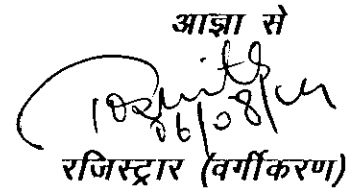 आज्ञा से
06/08/
रजिस्ट्रार (वर्गीकरण)